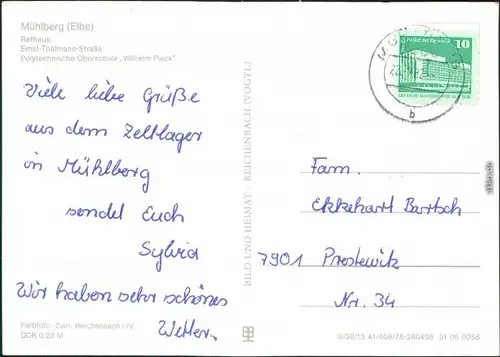 Mühlberg (Elbe)
Rathaus
Ernst-Thälmann-Straße
Polytechnische Oberschule „Wilhelm Pieck"
Viele liebe Grüße
aus dem Zeltlager
in Mühlberg
sendet Euch
Sylvia
Wir haben sehr schönes
Wetter.
Farbfoto: Darr, Reichenbach i.V.
DDR 0,20 M
BILD UND HEIMAT · REICHENBACH (VOGTL)
10
b
Fam.
Ekkehart Bartsch
7901 Prestewitz
Nr. 34
A1/406/78-280406 01 06 0056